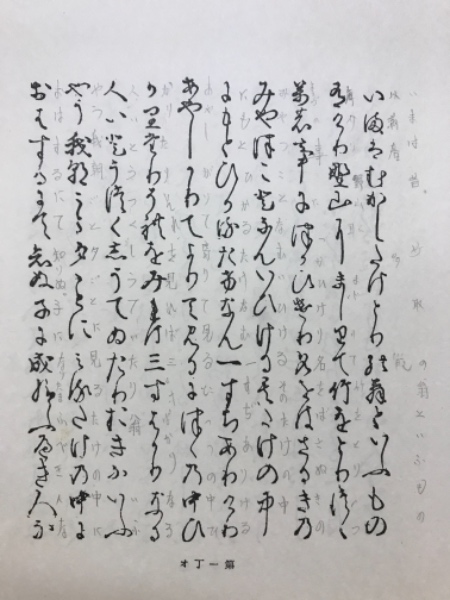 いまはむかしたけとりの翁といふもの
有けり野山にましりて竹をとりつゝ
万の事につかひけり名をはさるきの
みやつことなんいひけるそのたけの中
にもとひかるたけなん一すちありけり
あやしかりてよりて見るにつゝの中ひ
かりたりそれをみれは三すはかりなる
人いとうつくしうてゐたりおきないふ
やう我朝ことタことにみるたけの中に
おはするにてしりぬ子に成給へき人な
第一丁オ